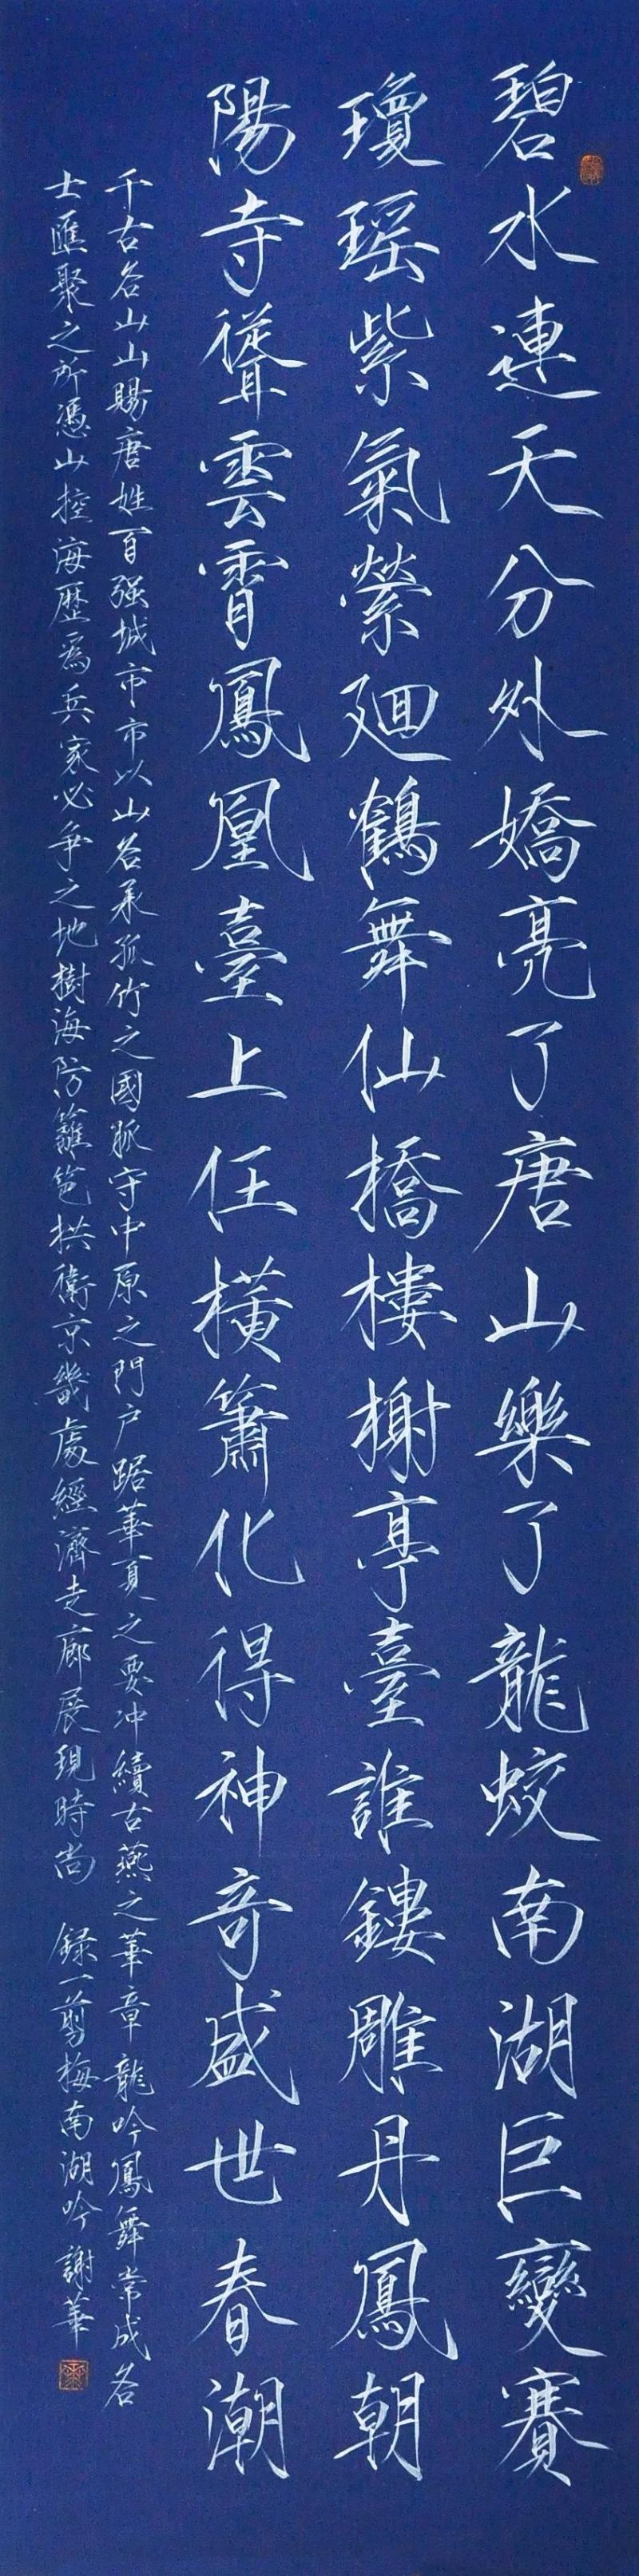 碧水連天分外嬌亮了唐山樂了龍蛟南湖巨變賽
瓊瑤紫氣縈廻鶴舞仙橋樓榭亭臺誰鏤雕丹鳳朝
陽寺聳雲霄鳳凰臺上任橫簫化得神奇盛世春潮
千古名山山賜唐姓百强城市市以山名承孤竹之國脈守中原之門户踞華夏之要冲續古燕之華章龍吟鳳舞常成名
士匯聚之所憑山控海歷爲兵家必爭之地樹海防籬笆拱衛京畿處經濟走廊展現時尚 録一剪梅南湖吟謝華